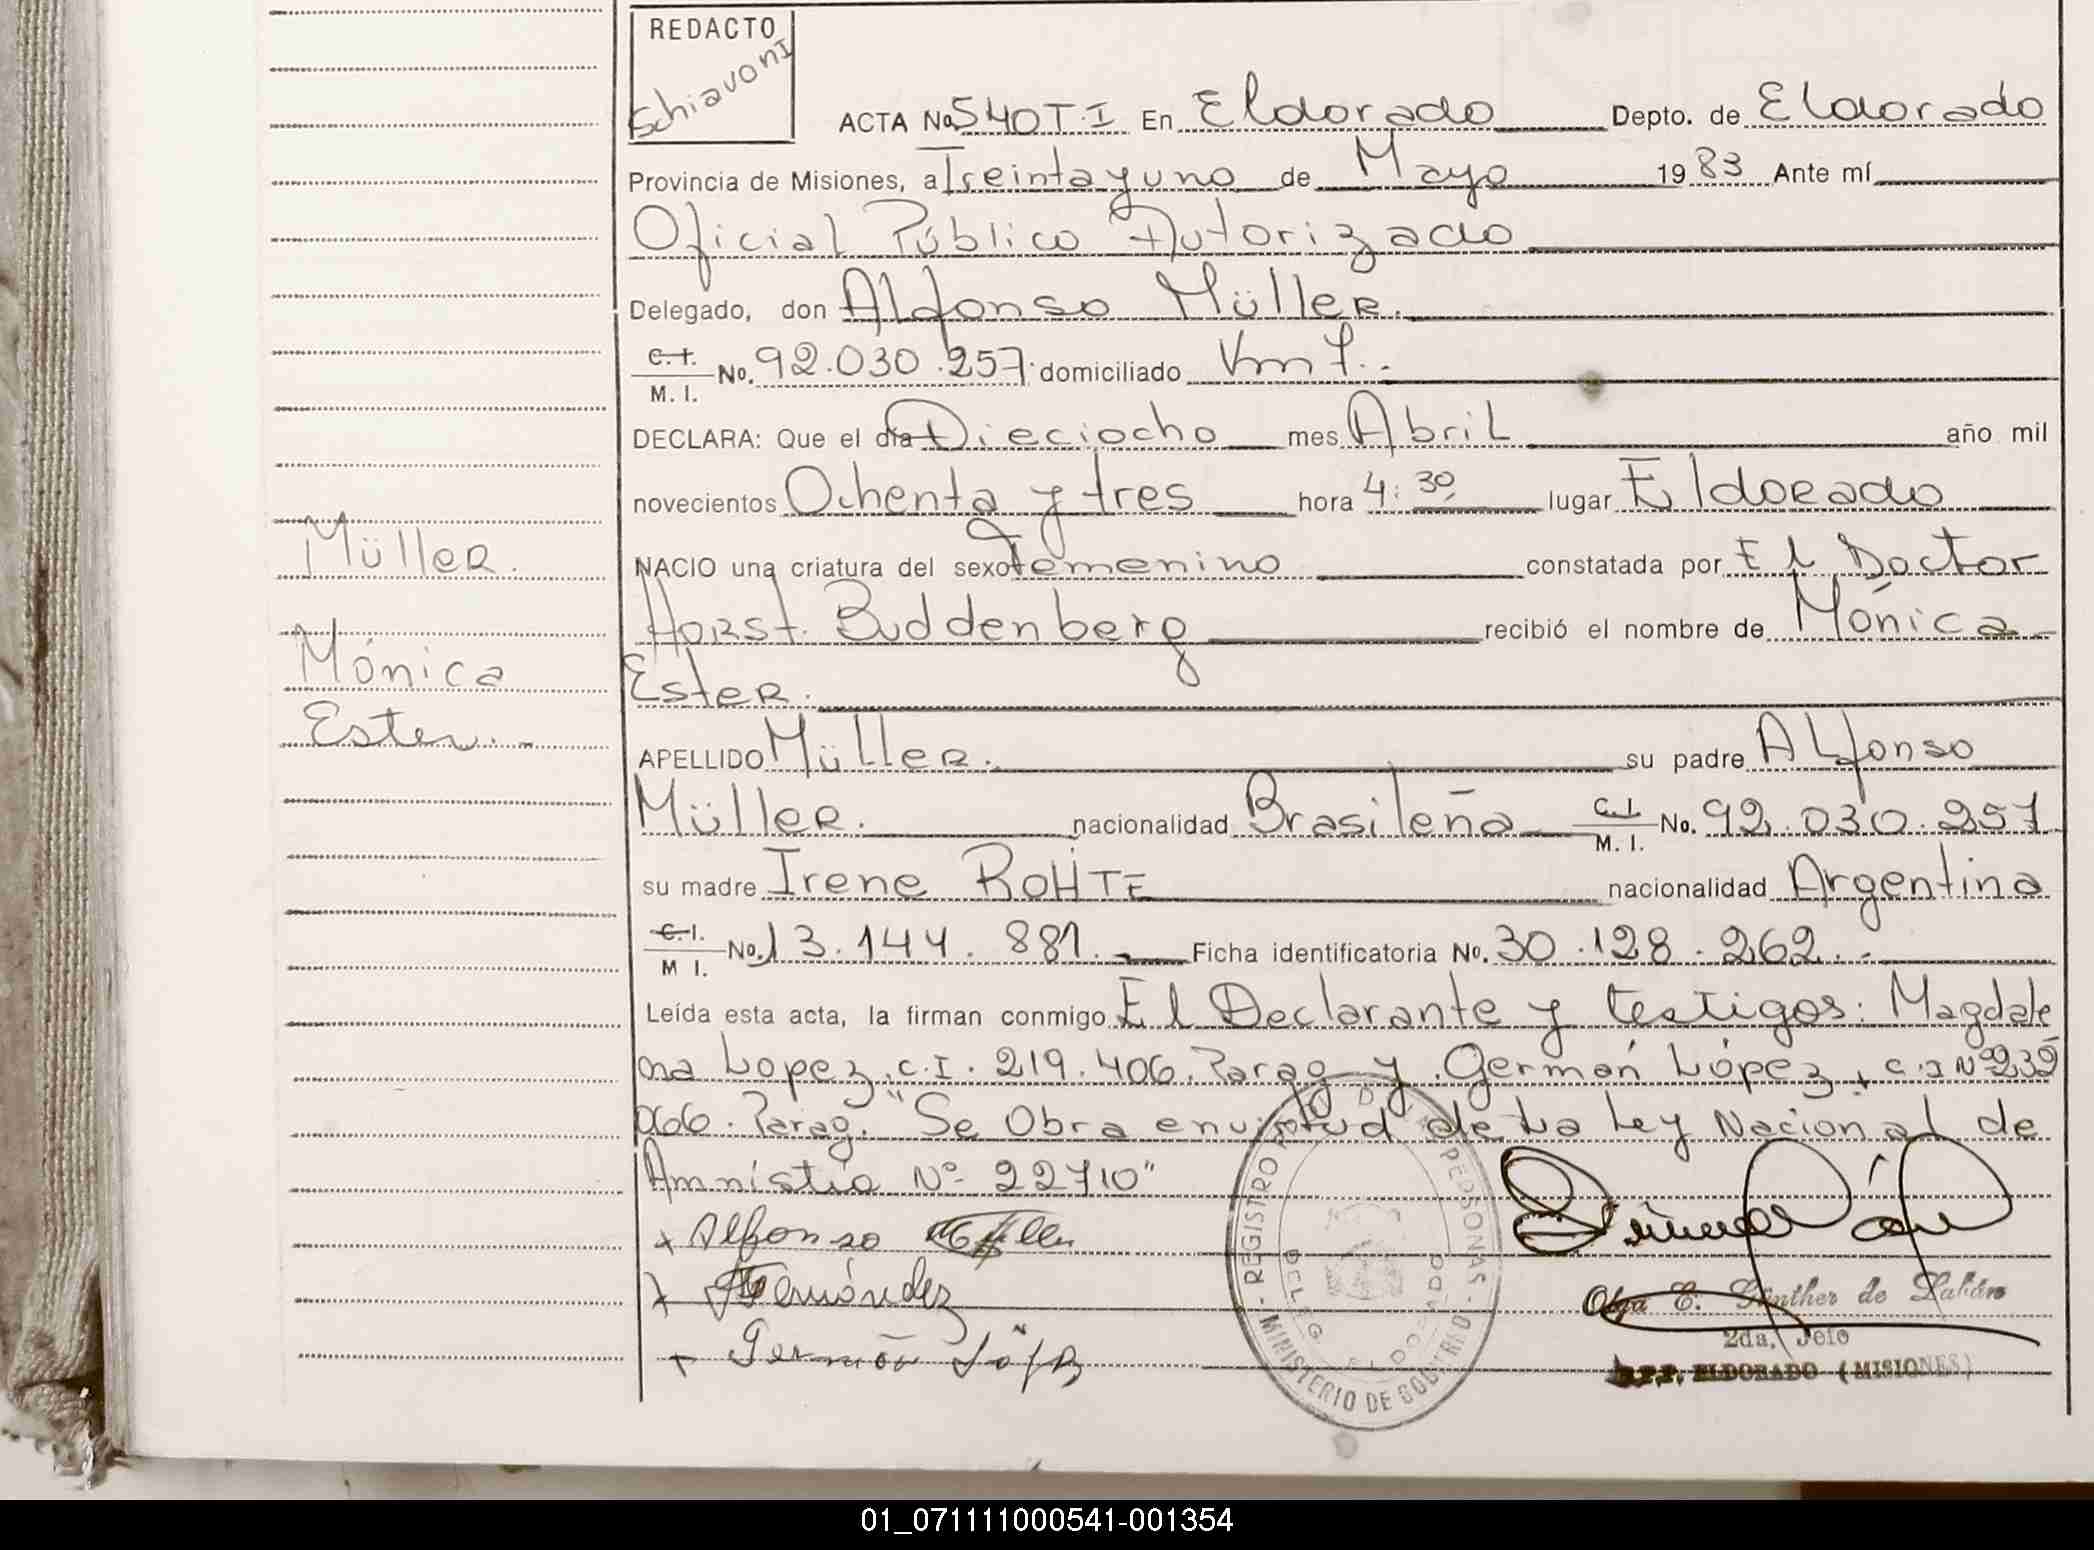 REDACTO
Schiavoni
ACTA No. 540 T.I En Eldorado Depto. de Eldorado
Provincia de Misiones, a Treinta y uno de Mayo 1983 Ante mí
Oficial Público Autorizado
Delegado, don Alfonso Müller.
C.I. M. I. No. 92.030.257. domiciliado Km 7.
DECLARA: Que el día Dieciocho mes Abril año mil
novecientos Ochenta y tres hora 4:30 lugar Eldorado
Müller.
NACIO una criatura del sexo femenino constatada por El Doctor
Horst. Buddenberg recibió el nombre de Mónica
Mónica
Ester.
Ester.
APELLIDO Müller. su padre Alfonso
Müller. nacionalidad Brasileña C.I. M. I. No. 92.030.257
su madre Irene ROHTE nacionalidad Argentina
C.I. M I. No. 13.144.881. Ficha identificatoria No. 30.128.262.
Leída esta acta, la firman conmigo El Declarante y testigos: Magdale
na Lopez, c.I. 219.406. Parag y Germán López, c.I Nº 239
066. Parag. "Se Obra en virtud de La Ley Nacional de
Amnistia Nº 22710"
x Alfonso
x Hernández
x Germán López
REGISTRO PERSONAS
MINISTERIO DE GOBIERNO
Olga E. Günther de
2da. Jefe
R.P.P. ELDORADO (MISIONES)
01_071111000541-001354